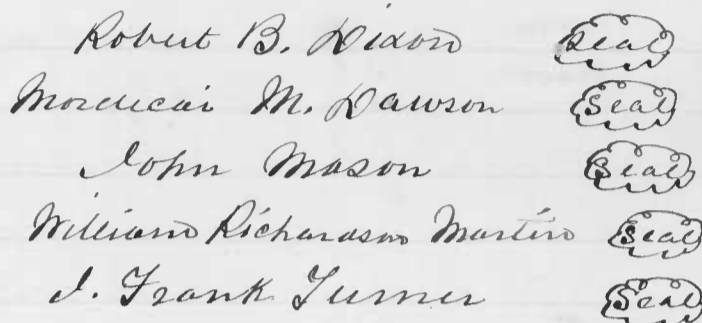 Robert B. Dixon Seal
Mordecai M. Dawson Seal
John Mason Seal
William Richardson Martin Seal
J. Frank Turner Seal